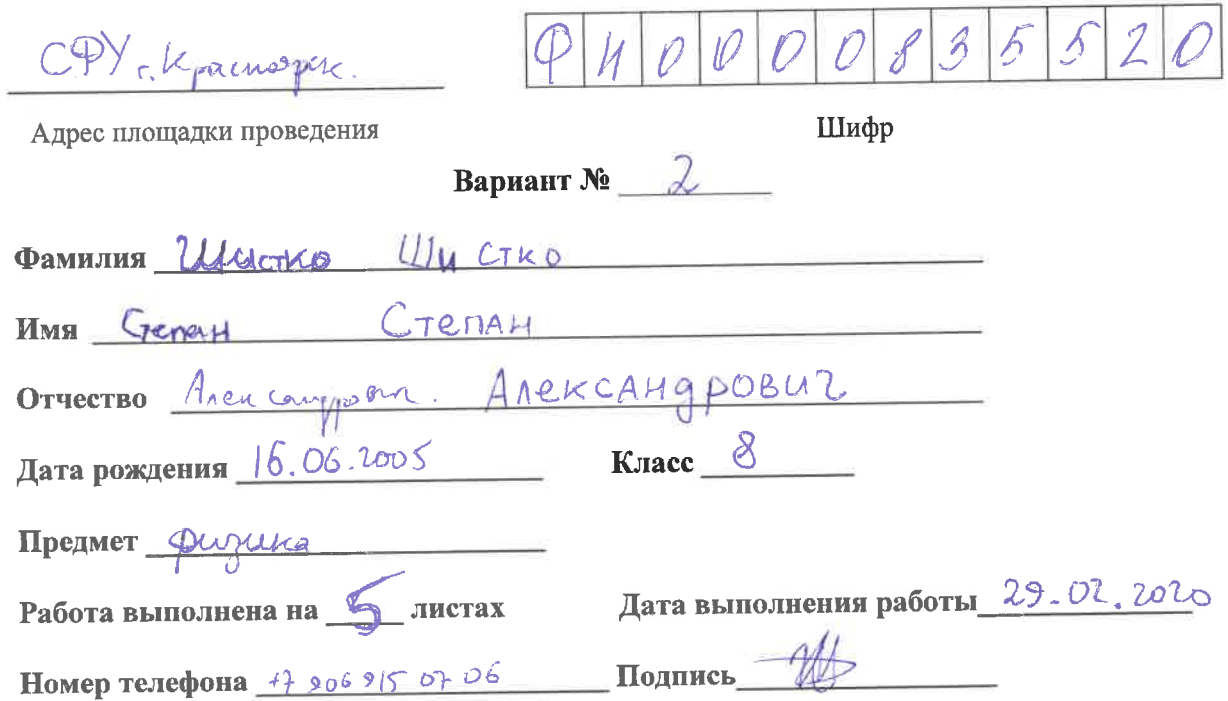 СФУ г. Красноярск. ФИ0000835520
Адрес площадки проведения Шифр
Вариант № 2
Фамилия Шистко Шистко
Имя Степан Степан
Отчество Александрович. Александрович
Дата рождения 16.06.2005 Класс 8
Предмет Физика
Работа выполнена на 5 листах Дата выполнения работы 29.02.2020
Номер телефона +7 906 915 07 06 Подпись